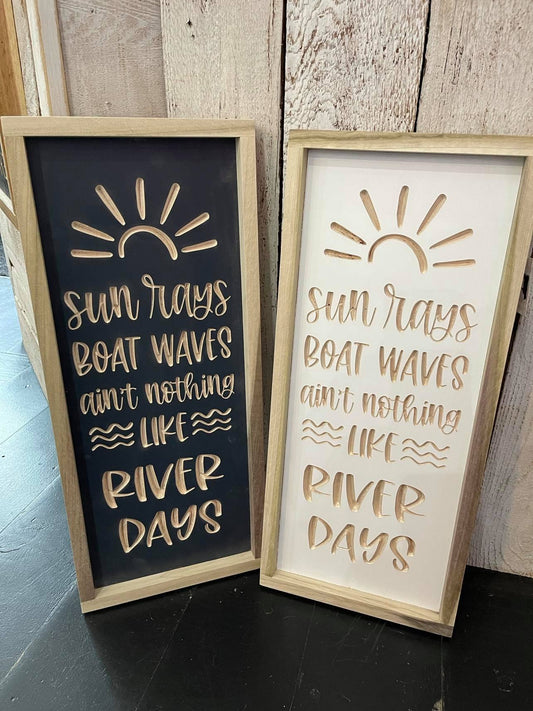 sun rays
BOAT WAVES
ain't nothing
LIKE
RIVER
DAYS
sun rays
BOAT WAVES
ain't nothing
LIKE
RIVER
DAYS